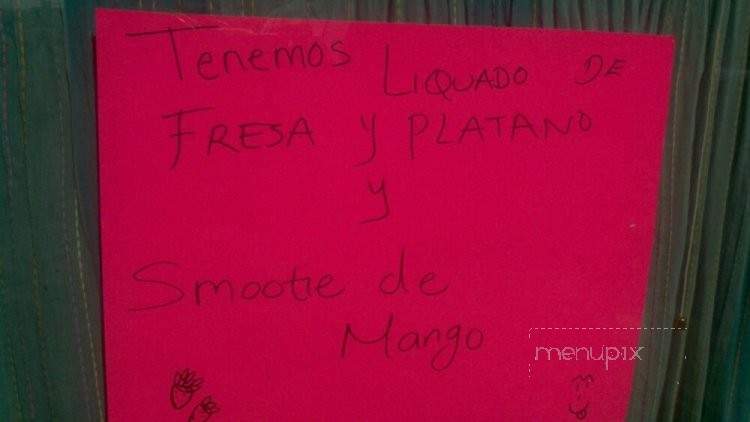 Tenemos LIQUADO DE
FRESA Y PLATANO
y
Smootie de
Mango
menupix